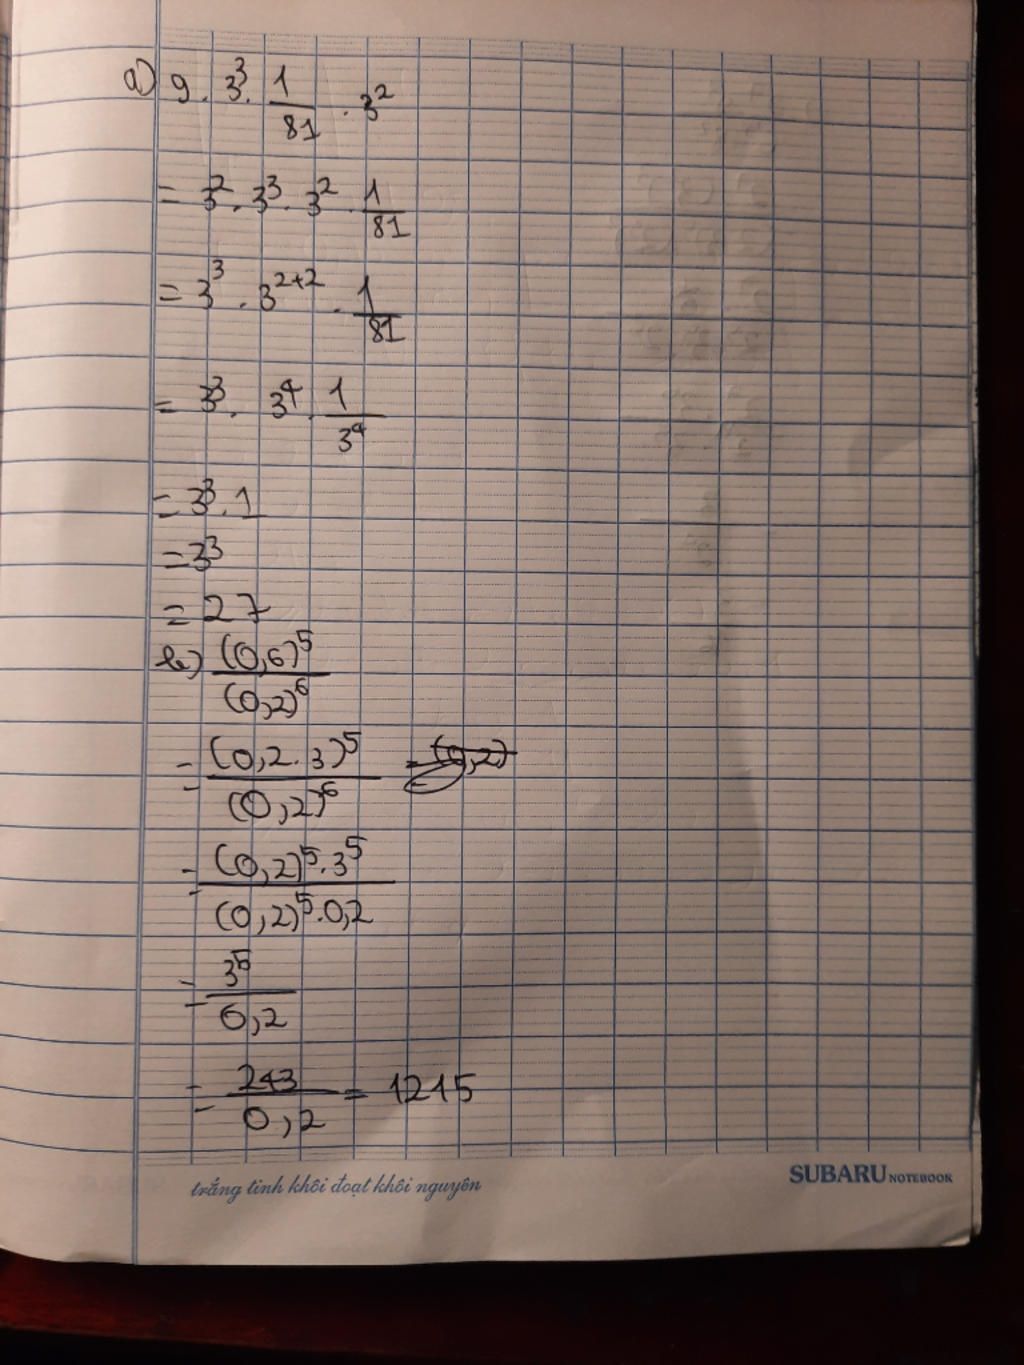 a) 9 . 3³ . 1/81 . 3²
= 3² . 3³ . 3² . 1/81
= 3³ . 3²⁺² . 1/81
= 3³ . 3⁴ . 1/3⁴
= 3³ . 1
= 3³
= 27
b) (0,6)⁵/(0,2)⁶
= (0,2 . 3)⁵/(0,2)⁶ = (0,2)
= (0,2)⁵ . 3⁵/(0,2)⁵ . 0,2
= 3⁵/0,2
= 243/0,2 = 1215
trắng tinh khôi đoạt khôi nguyên
SUBARU NOTEBOOK